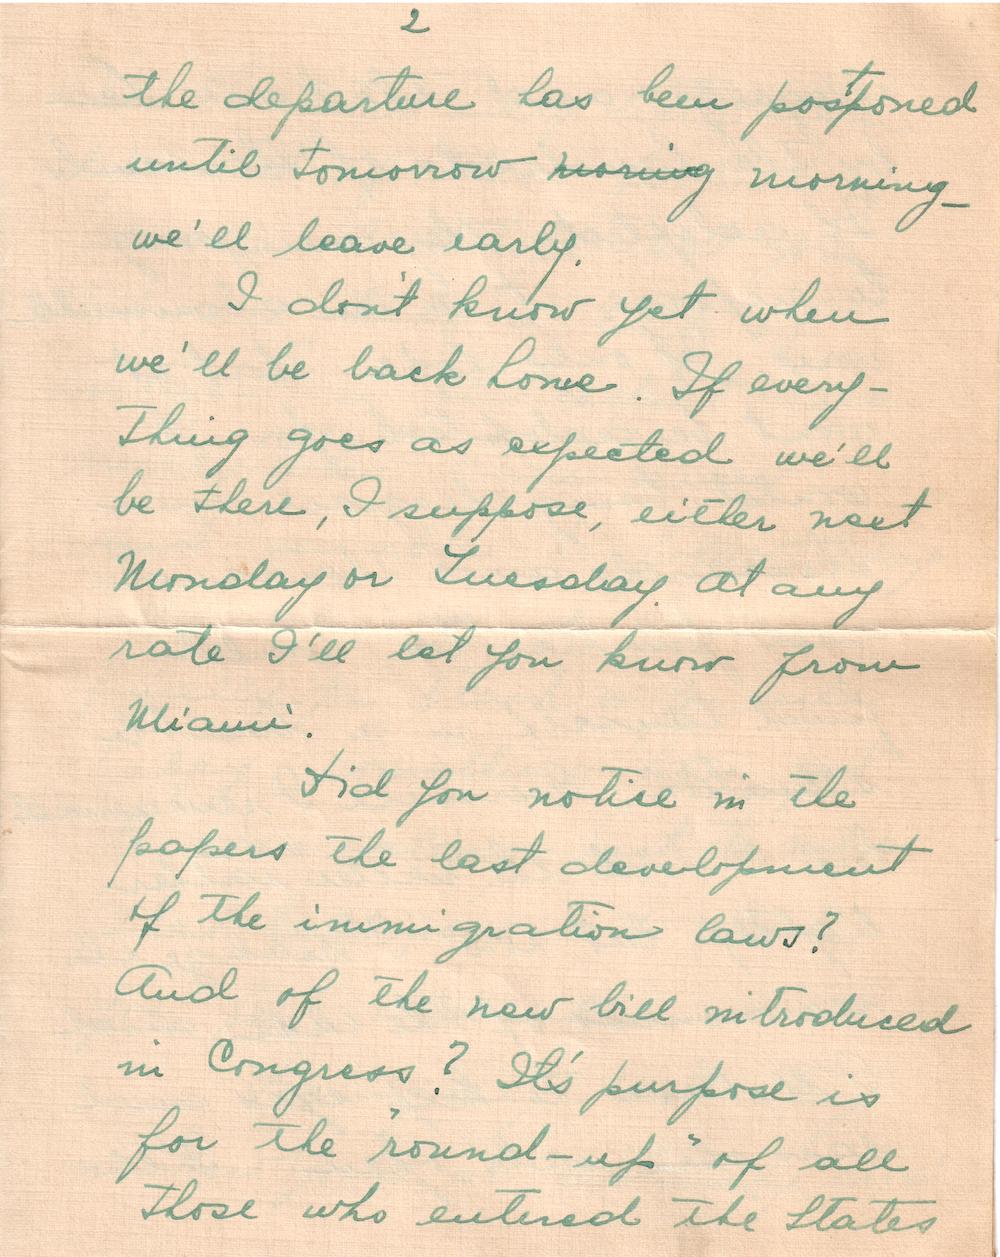 2
the departure has been postponed
until tomorrow moring morning_
we'll leave early.
I don't know yet when
we'll be back home. If every-
thing goes as expected we'll
be there, I suppose, either next
Monday or Tuesday. At any
rate I'll let you know from
Miami.
Did you notise in the
papers the last development
of the immigration laws?
And of the new bill introduced
in Congress? It's purpose is
for the "round-up" of all
those who entered the States